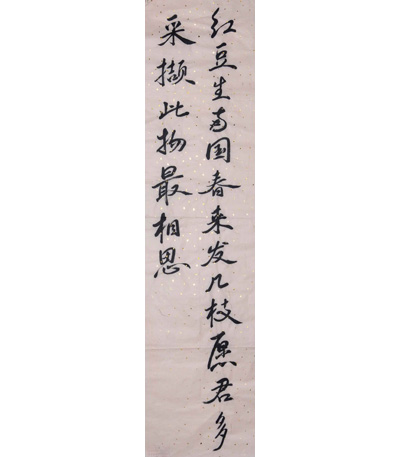 红豆生南国春来发几枝愿君多
采撷此物最相思